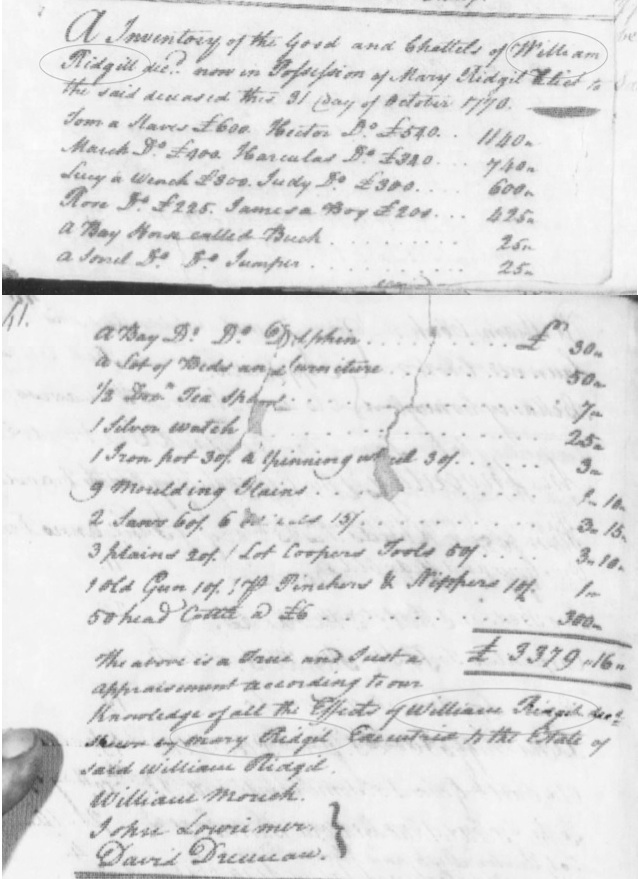 A Inventory of the Good and Chattels of William
Ridgill dec.d now in Possession of Mary Ridgil to
the said deceased this 31 Day of October 1770.
Tom a Slaves £600. Hector Do £540 .. 1140„
March Do £400. Harculas Do £340 .. 740„
Lucy a Wench £300. Judy Do £300 .... 600„
Rose Do £225. James a Boy £200 ... 425„
A Bay Horse called Buck ........ 25„
A Sorrel Do Do Jumper ......... 25„
41.
A Bay Do Do Dolphin ........ £ 30„
A Lot of Beds and Furniture 50„
1/2 Doz.n Tea Spoons ........ 7„
1 Silver Watch ........ 25„
1 Iron pot 30/. A Spinning wheel 30/. .... 3„
9 Moulding Plains ........ 10„
2 Saws 60/. 6 15/. ........ 3„ 15„
3 plains 20/. 1 Lot Coopers Tools 50/. .... 3„ 10„
1 old Gun 10/. 1 Pr Pinchers & Nippers 10/. 1„
50 head Cattle a £6 300„
The above is a True and Just a £ 3379„16„
appraisement according to our
Knowledge of all the Effects of William Ridgil dec.d
shewn by Mary Ridgil Executrix to the Estate of
said William Ridgil.
William Mouch.
John Lowrimer }
David Duncan.